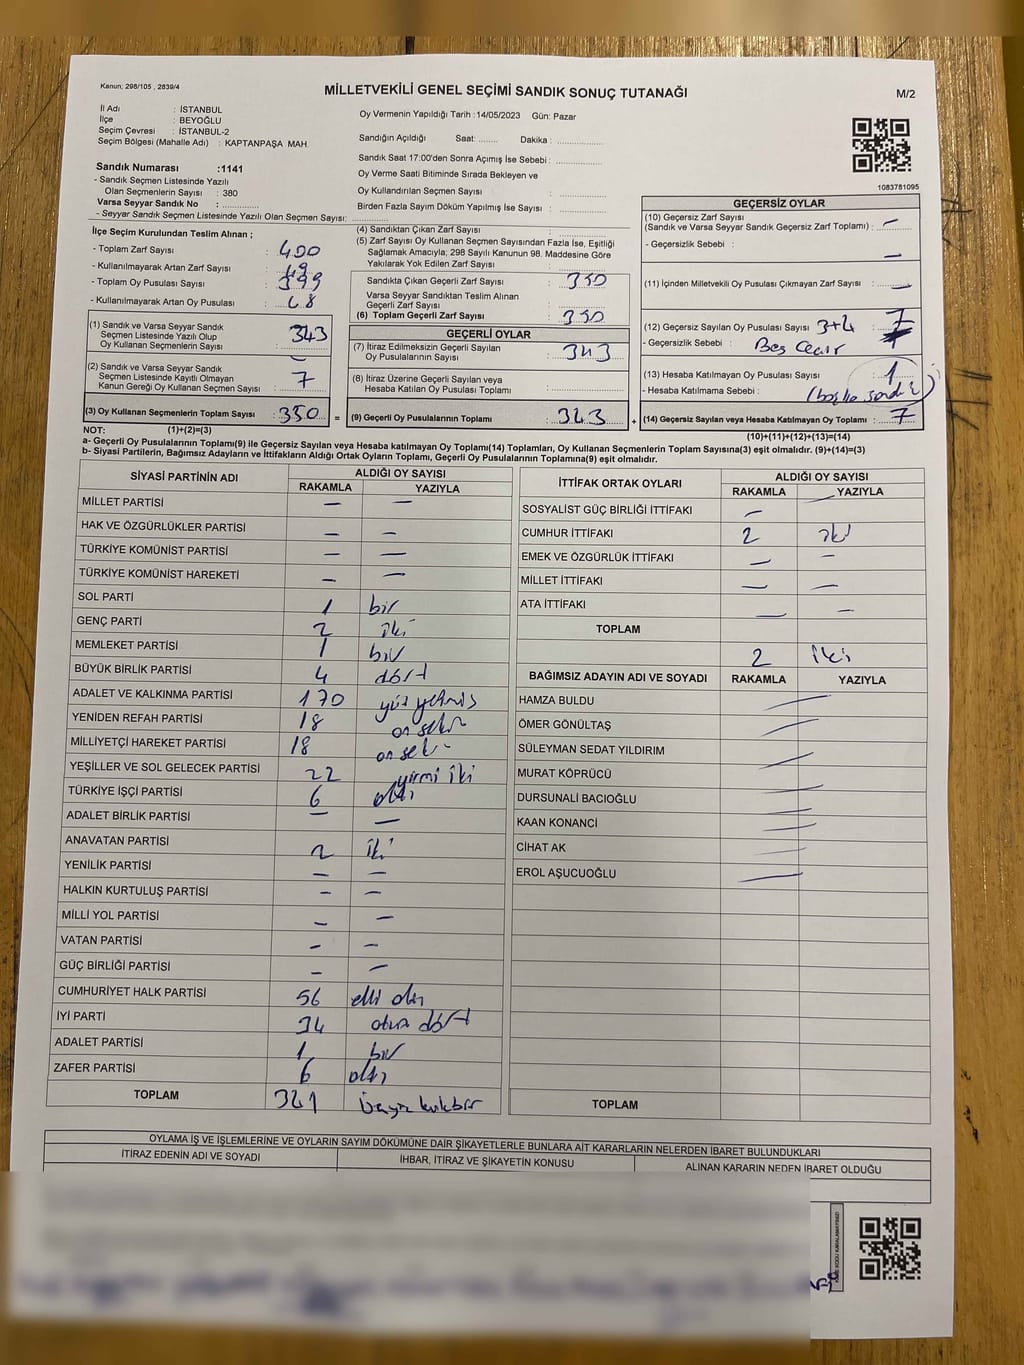 Kanun; 298/105 , 2839/4
MİLLETVEKİLİ GENEL SEÇİMİ SANDIK SONUÇ TUTANAĞI
M/2
İl Adı : İSTANBUL
İlçe : BEYOĞLU
Seçim Çevresi : İSTANBUL-2
Seçim Bölgesi (Mahalle Adı) : KAPTANPAŞA MAH.
Sandık Numarası :1141
- Sandık Seçmen Listesinde Yazılı
Olan Seçmenlerin Sayısı : 380
Varsa Seyyar Sandık No : ............
- Seyyar Sandık Seçmen Listesinde Yazılı Olan Seçmen Sayısı: ............
Oy Vermenin Yapıldığı Tarih : 14/05/2023 Gün: Pazar
Sandığın Açıldığı Saat: ............ Dakika : ............
Sandık Saat 17:00'den Sonra Açımış İse Sebebi : ............
Oy Verme Saati Bitiminde Sırada Bekleyen ve
Oy Kullandırılan Seçmen Sayısı : ............
Birden Fazla Sayım Döküm Yapılmış İse Sayısı : ............
1083781095
İlçe Seçim Kurulundan Teslim Alınan ;
- Toplam Zarf Sayısı : 400
- Kullanılmayarak Artan Zarf Sayısı : 49
- Toplam Oy Pusulası Sayısı : 399
- Kullanılmayarak Artan Oy Pusulası : 48
(1) Sandık ve Varsa Seyyar Sandık
Seçmen Listesinde Yazılı Olup
Oy Kullanan Seçmenlerin Sayısı : 343
(2) Sandık ve Varsa Seyyar Sandık
Seçmen Listesinde Kayıtlı Olmayan
Kanun Gereği Oy Kullanan Seçmen Sayısı : 7
(3) Oy Kullanan Seçmenlerin Toplam Sayısı : 350 =
(4) Sandıktan Çıkan Zarf Sayısı : ............
(5) Zarf Sayısı Oy Kullanan Seçmen Sayısından Fazla İse, Eşitliği
Sağlamak Amacıyla; 298 Sayılı Kanunun 98. Maddesine Göre
Yakılarak Yok Edilen Zarf Sayısı : ............
Sandıkta Çıkan Geçerli Zarf Sayısı : 350
Varsa Seyyar Sandıktan Teslim Alınan
Geçerli Zarf Sayısı : ............
(6) Toplam Geçerli Zarf Sayısı : 350
GEÇERLİ OYLAR
(7) İtiraz Edilmeksizin Geçerli Sayılan
Oy Pusulalarının Sayısı : 343
(8) İtiraz Üzerine Geçerli Sayılan veya
Hesaba Katılan Oy Pusulası Toplamı : ............
(9) Geçerli Oy Pusulalarının Toplamı : 343 +
GEÇERSİZ OYLAR
(10) Geçersiz Zarf Sayısı
(Sandık ve Varsa Seyyar Sandık Geçersiz Zarf Toplamı) : —
- Geçersizlik Sebebi : —
(11) İçinden Milletvekili Oy Pusulası Çıkmayan Zarf Sayısı : —
(12) Geçersiz Sayılan Oy Pusulası Sayısı 3+4 : 7
- Geçersizlik Sebebi : Beş
(13) Hesaba Katılmayan Oy Pusulası Sayısı : 1
- Hesaba Katılmama Sebebi : (başka sandık)
(14) Geçersiz Sayılan veya Hesaba Katılmayan Oy Toplamı : 7
NOT: (1)+(2)=(3)
(10)+(11)+(12)+(13)=(14)
a- Geçerli Oy Pusulalarının Toplamı(9) ile Geçersiz Sayılan veya Hesaba katılmayan Oy Toplamı(14) Toplamları, Oy Kullanan Seçmenlerin Toplam Sayısına(3) eşit olmalıdır. (9)+(14)=(3)
b- Siyasi Partilerin, Bağımsız Adayların ve İttifakların Aldığı Ortak Oyların Toplamı, Geçerli Oy Pusulalarının Toplamına(9) eşit olmalıdır.
SİYASİ PARTİNİN ADI ALDIĞI OY SAYISI
RAKAMLA YAZIYLA
MİLLET PARTİSİ — —
HAK VE ÖZGÜRLÜKLER PARTİSİ — —
TÜRKİYE KOMÜNİST PARTİSİ — —
TÜRKİYE KOMÜNİST HAREKETİ — —
SOL PARTİ 1 bir
GENÇ PARTİ 2 iki
MEMLEKET PARTİSİ 1 bir
BÜYÜK BİRLİK PARTİSİ 4 dört
ADALET VE KALKINMA PARTİSİ 170 yüz yetmiş
YENİDEN REFAH PARTİSİ 18 on sekiz
MİLLİYETÇİ HAREKET PARTİSİ 18 on sekiz
YEŞİLLER VE SOL GELECEK PARTİSİ 22 yirmi iki
TÜRKİYE İŞÇİ PARTİSİ 6 altı
ADALET BİRLİK PARTİSİ — —
ANAVATAN PARTİSİ 2 iki
YENİLİK PARTİSİ — —
HALKIN KURTULUŞ PARTİSİ — —
MİLLİ YOL PARTİSİ — —
VATAN PARTİSİ — —
GÜÇ BİRLİĞİ PARTİSİ — —
CUMHURİYET HALK PARTİSİ 56 elli altı
İYİ PARTİ 34 otuz dört
ADALET PARTİSİ 1 bir
ZAFER PARTİSİ 6 altı
TOPLAM 341 üçyüz kırkbir
İTTİFAK ORTAK OYLARI ALDIĞI OY SAYISI
RAKAMLA YAZIYLA
SOSYALİST GÜÇ BİRLİĞİ İTTİFAKI — —
CUMHUR İTTİFAKI 2 iki
EMEK VE ÖZGÜRLÜK İTTİFAKI — —
MİLLET İTTİFAKI — —
ATA İTTİFAKI — —
TOPLAM
2 iki
BAĞIMSIZ ADAYIN ADI VE SOYADI RAKAMLA YAZIYLA
HAMZA BULDU —
ÖMER GÖNÜLTAŞ —
SÜLEYMAN SEDAT YILDIRIM —
MURAT KÖPRÜCÜ —
DURSUNALİ BACIOĞLU —
KAAN KONANCİ —
CİHAT AK —
EROL AŞUCUOĞLU —
TOPLAM
OYLAMA İŞ VE İŞLEMLERİNE VE OYLARIN SAYIM DÖKÜMÜNE DAİR ŞİKAYETLERLE BUNLARA AİT KARARLARIN NELERDEN İBARET BULUNDUKLARI
İTİRAZ EDENİN ADI VE SOYADI İHBAR, İTİRAZ VE ŞİKAYETİN KONUSU ALINAN KARARIN NEDEN İBARET OLDUĞU